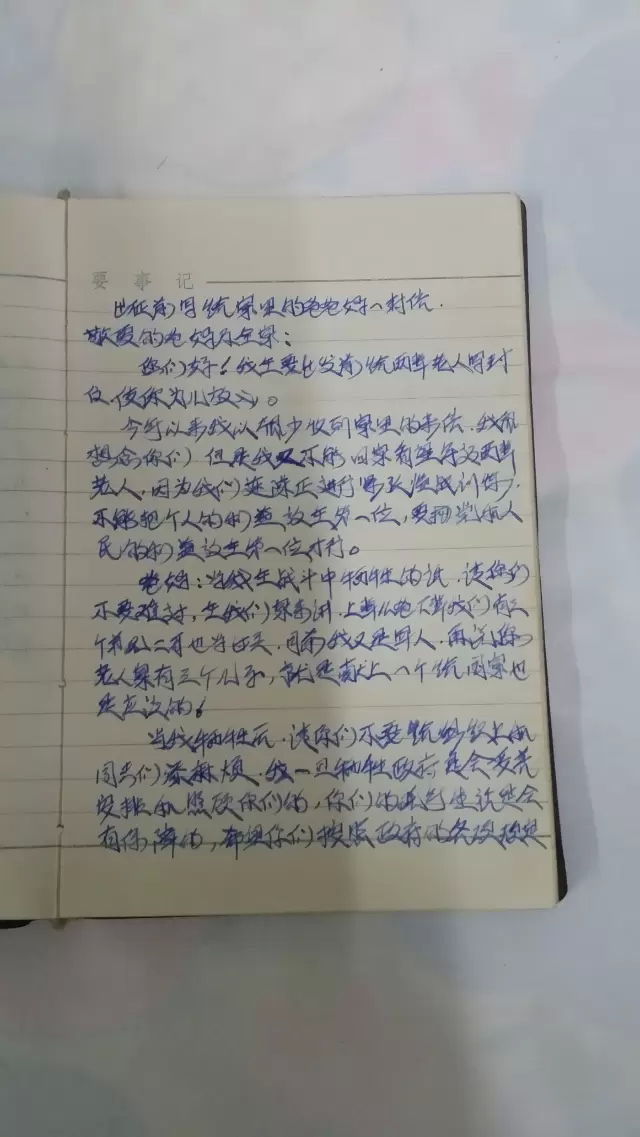 要事记
出征前写给家里的爸爸妈一封信.
敬爱的爸妈及全家:
您们好!我在要出发前给两老人写封
信,
今年以来我以很少收到家里的来信.我很
想念你们 但是我又不能回家看望
老人,因为我们连队正进行紧张临战训练,
不能把个人的利益放在第一位,要把党和人
民的利益放在第一位才行。
爸妈:当我在战斗中牺牲的话.请你们
不要难过,在我们家来讲,上辈 下辈我们有三
个弟兄 目前我又是军人,再说您
老人家有三个儿子,就是献上一个给国家也
是应该的!
当我牺牲后.请你们不要给组织上和
同志们添麻烦.我一旦牺牲政府是会妥善
安排和照顾你们的,你们的 生活是会
有保障的,希望你们按照政府的各项规定